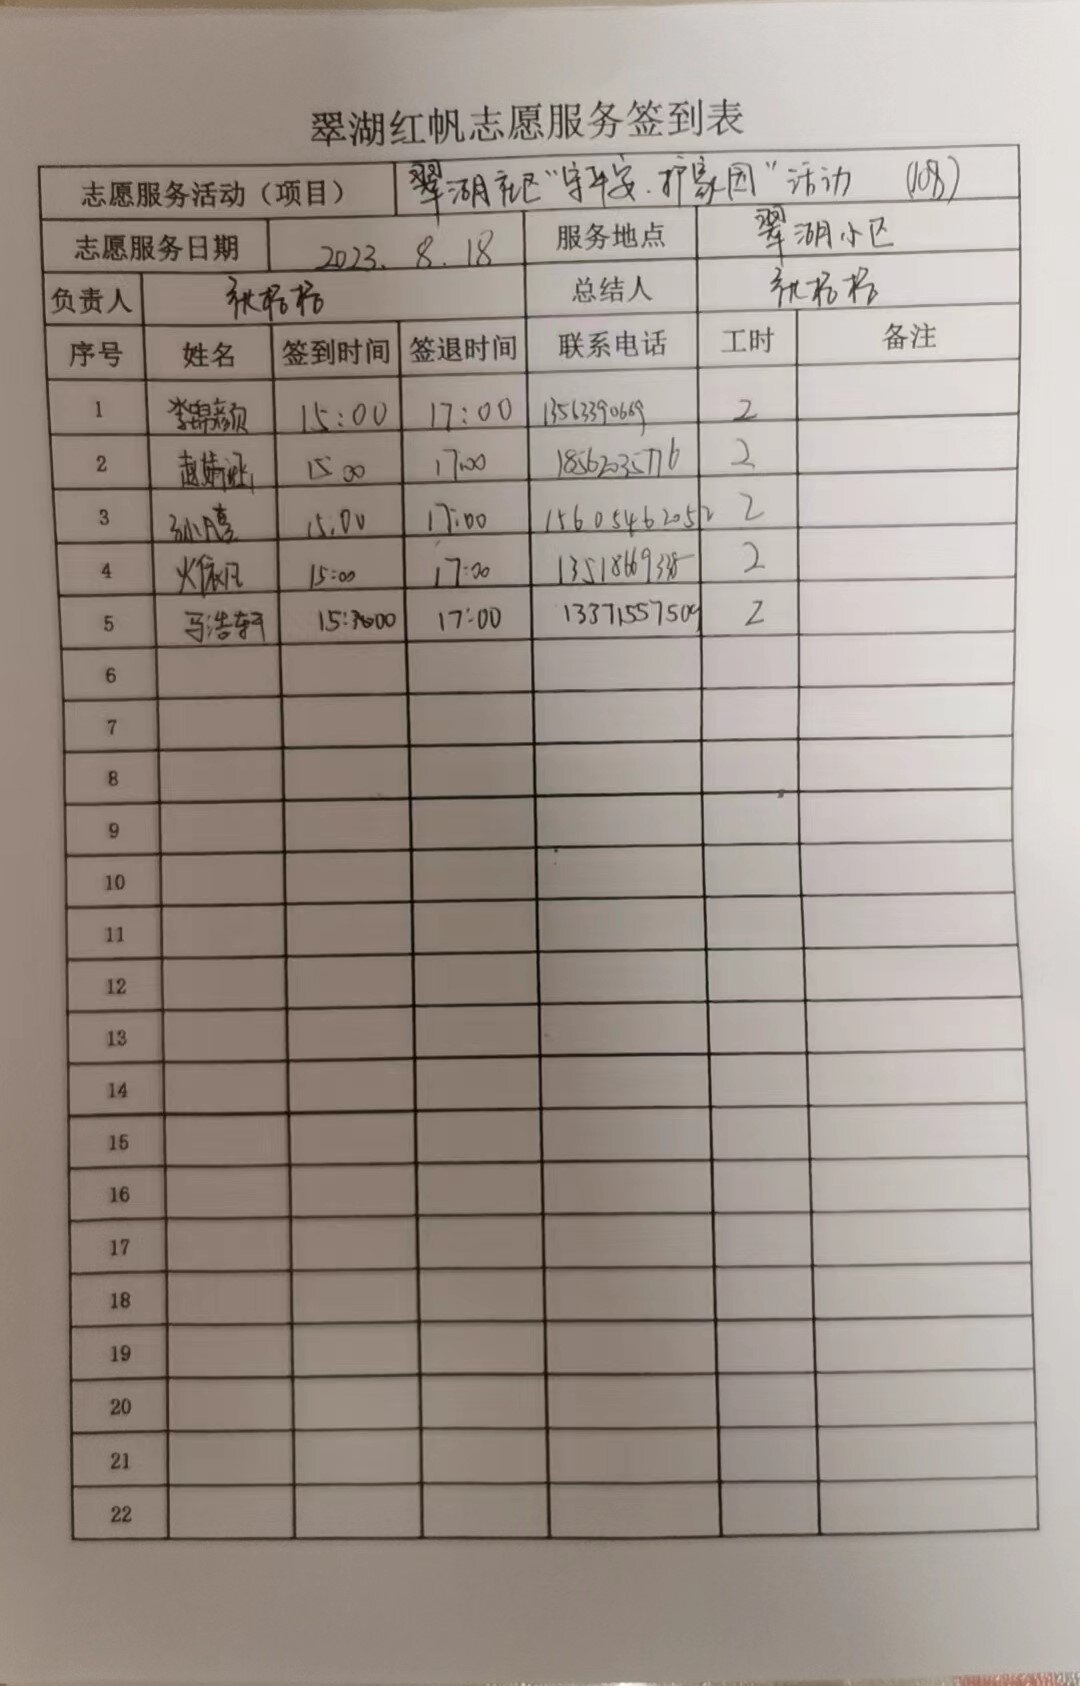 翠湖红帆志愿服务签到表
志愿服务活动（项目） 翠湖社区“守平安.护家园”活动
志愿服务日期 2023.8.18 服务地点 翠湖小区
负责人 总结人
序号 姓名 签到时间 签退时间 联系电话 工时 备注
1 李锦颜 15:00 17:00 13563390669 2
2 赵婧涵 15:00 17:00 18562035776 2
3 15:00 17:00 15605462052 2
4 15:00 17:00 2
5 马浩轩 17:00 13371557509 2
6
7
8
9
10
11
12
13
14
15
16
17
18
19
20
21
22